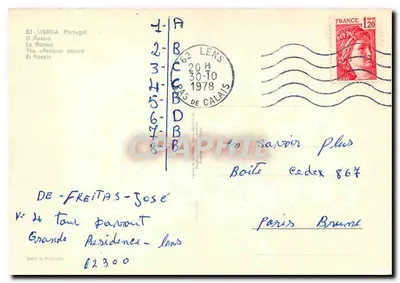 83 - LISBOA Portugal
O Rossio
Le Rossio
The «Rossio» square
El Rossio
1-A
2-B
3-C
4-C
5-B
6-D
7-B
8-B
62 LENS
20 H
30-10
1978
PAS DE CALAIS
FRANCE
1,20
En savoir plus
Boite Cedex 867
Paris Brune
DE-FREITAS-José
4 tour
Grande Residence-lens
62300
MADE IN PORTUGAL